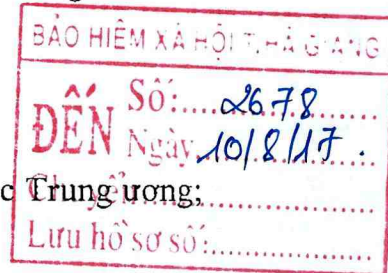 BẢO HIỂM XÃ HỘI T. HÀ GIANG
ĐẾN
Số:....2678
Ngày 10/8/17.
c Trung ương;
Chuyển:
Lưu hồ sơ số: